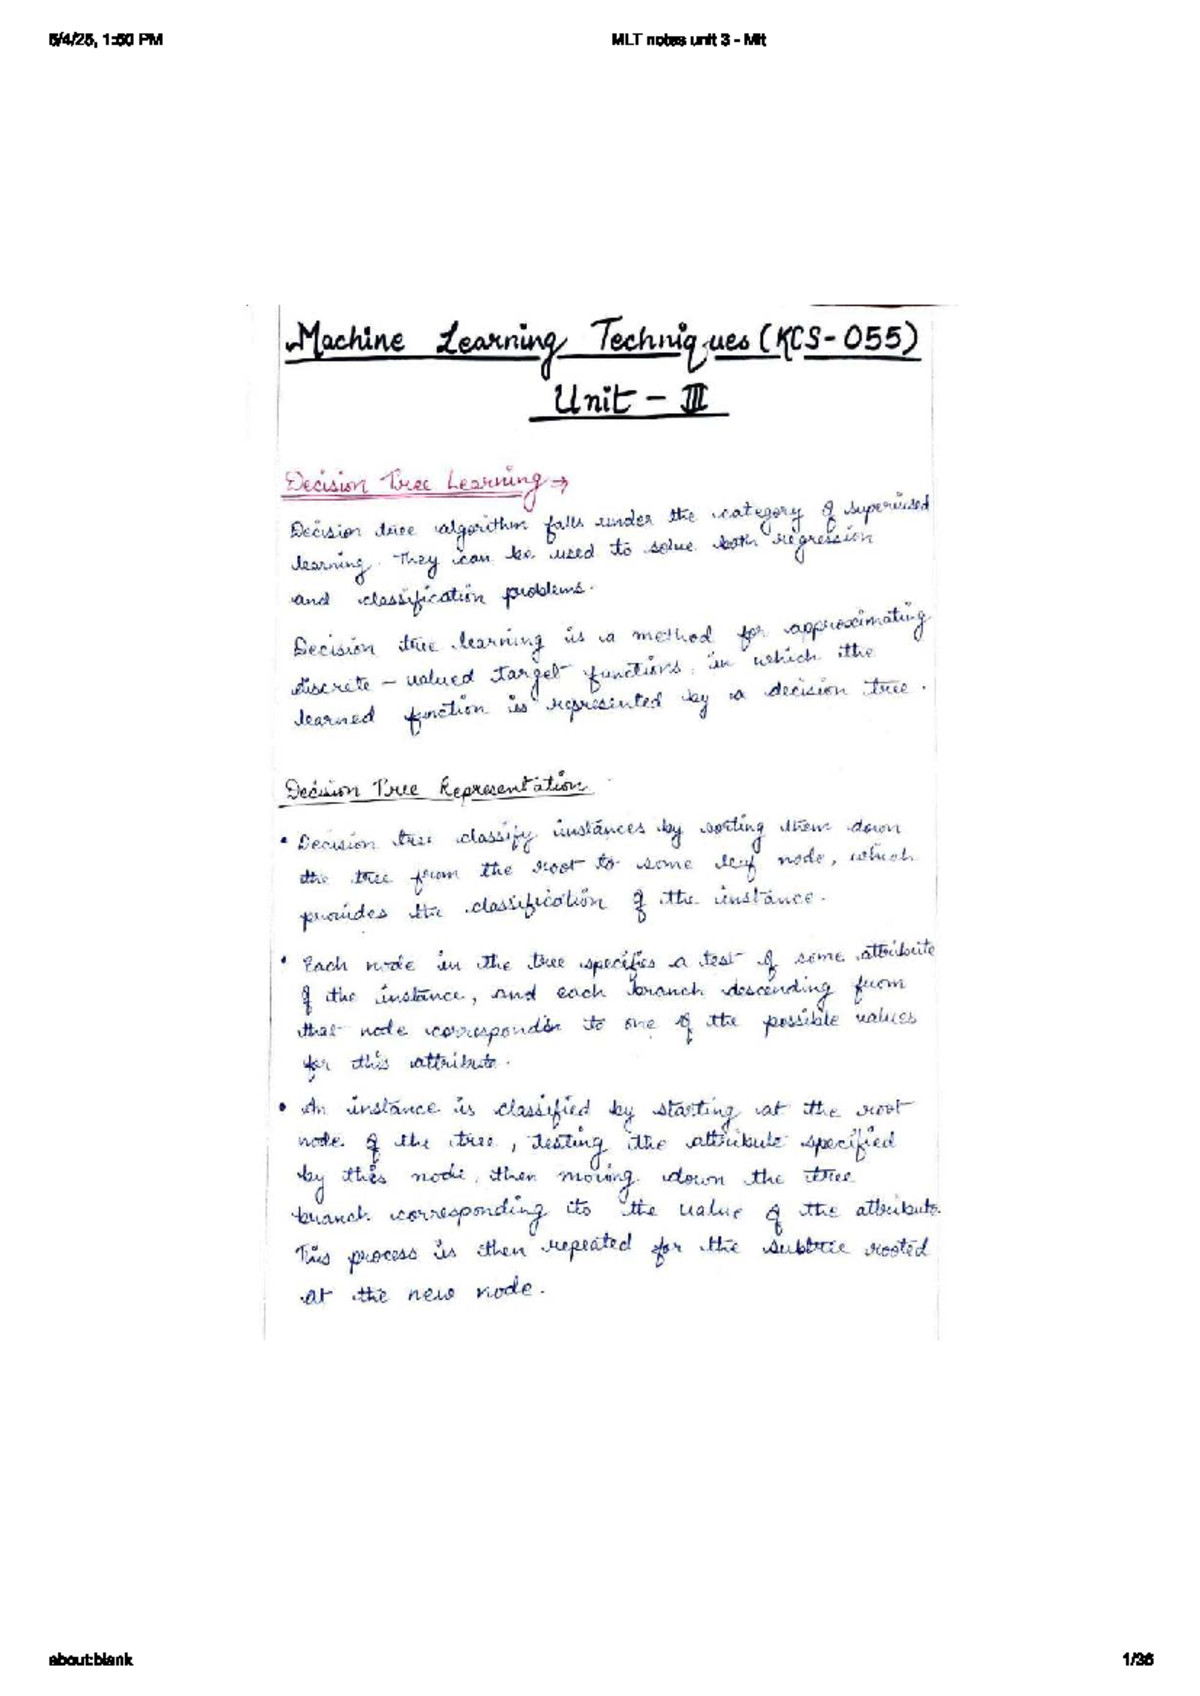 5/4/25, 1:50 PM
MLT notes unit 3 - Mlt
Machine Learning Techniques (KCS-055)
Unit - III
Decision Tree Learning →
Decision tree algorithm falls under the category of supervised
learning. They can be used to solve both regression
and classification problems.
Decision tree learning is a method for approximating
discrete - valued target functions, in which the
learned function is represented by a decision tree.
Decision Tree Representation
• Decision tree classify instances by sorting them down
the tree from the root to some leaf node, which
provides the classification of the instance.
• Each node in the tree specifies a test of some attribute
of the instance, and each branch descending from
that node corresponds to one of the possible values
for this attribute.
• An instance is classified by starting at the root
node of the tree, testing the attribute specified
by this node, then moving down the tree
branch corresponding to the value of the attribute.
This process is then repeated for the subtree rooted
at the new node.
about:blank
1/36